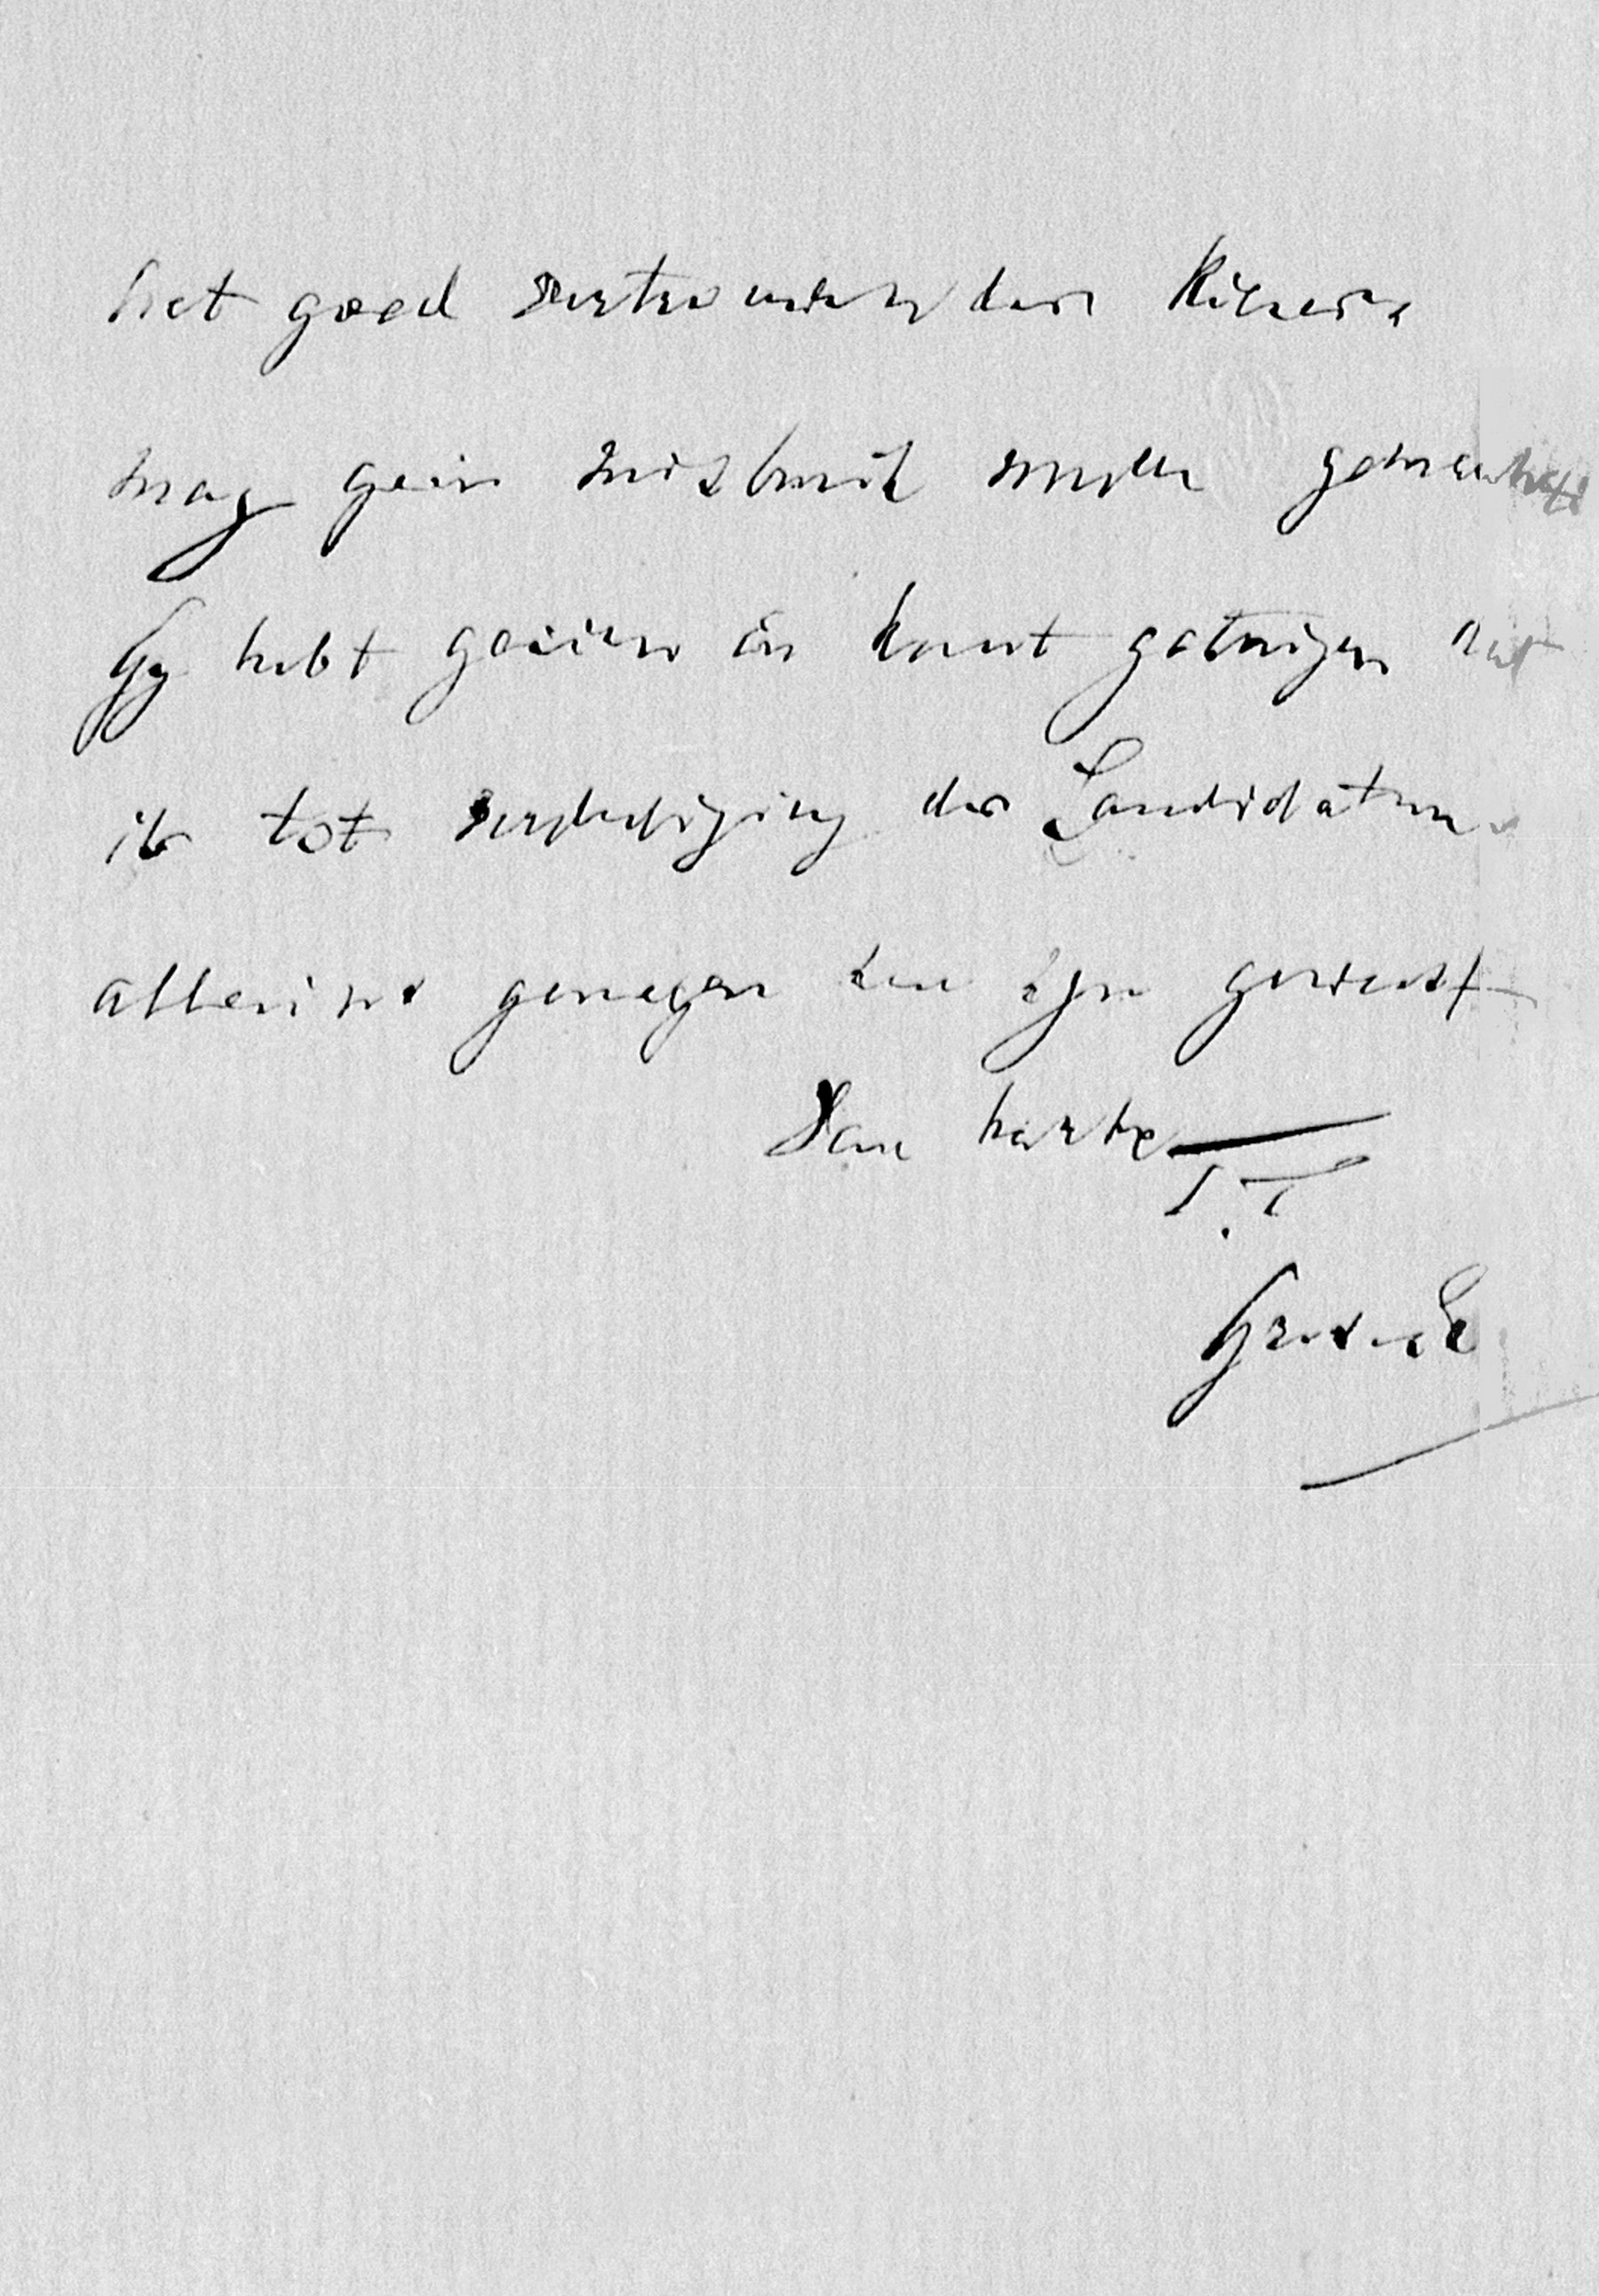 het goed vertrouwen der kiezers
mag geen misbruik worden gemaakt
Gy hebt gezien en kunt getuigen dat
ik tot verdediging der Candidaturen
alleen genegen ben zyn geweest
Van harte
T.T